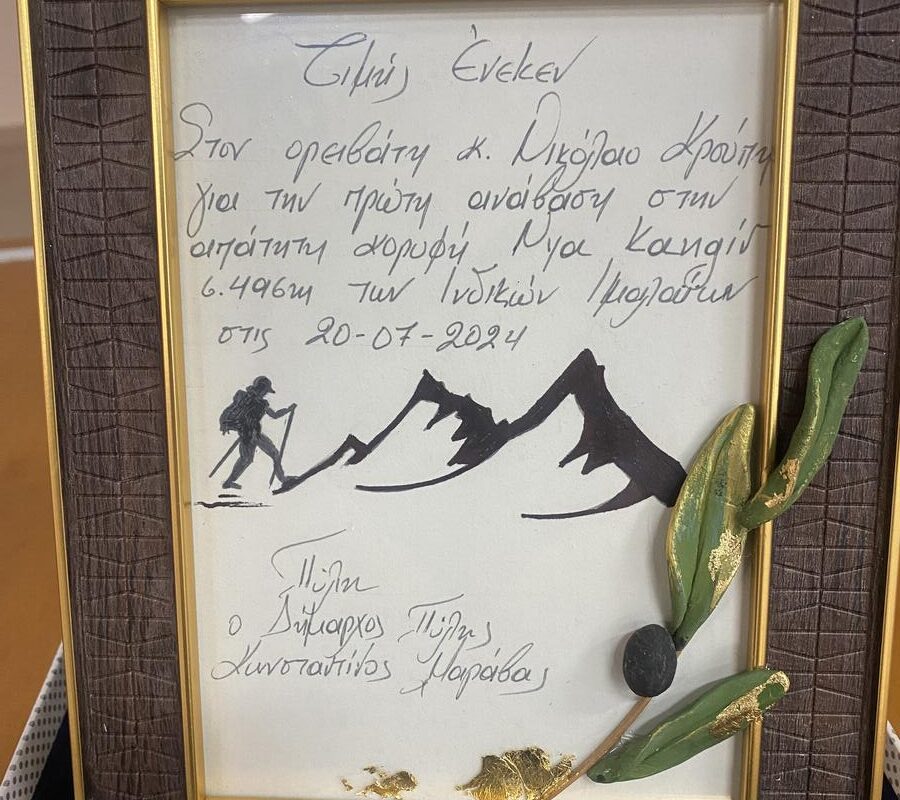 Τιμής Ένεκεν
Στον ορειβάτη κ. Νικόλαο Κρούπη
για την πρώτη ανάβαση στην
απάτητη κορυφή Νγα Κανγκίν
6.496m των Ινδικών Ιμαλαΐων
στις 20-07-2024
Πύλη
ο Δήμαρχος Πύλης
Κωνσταντίνος Μαράβας